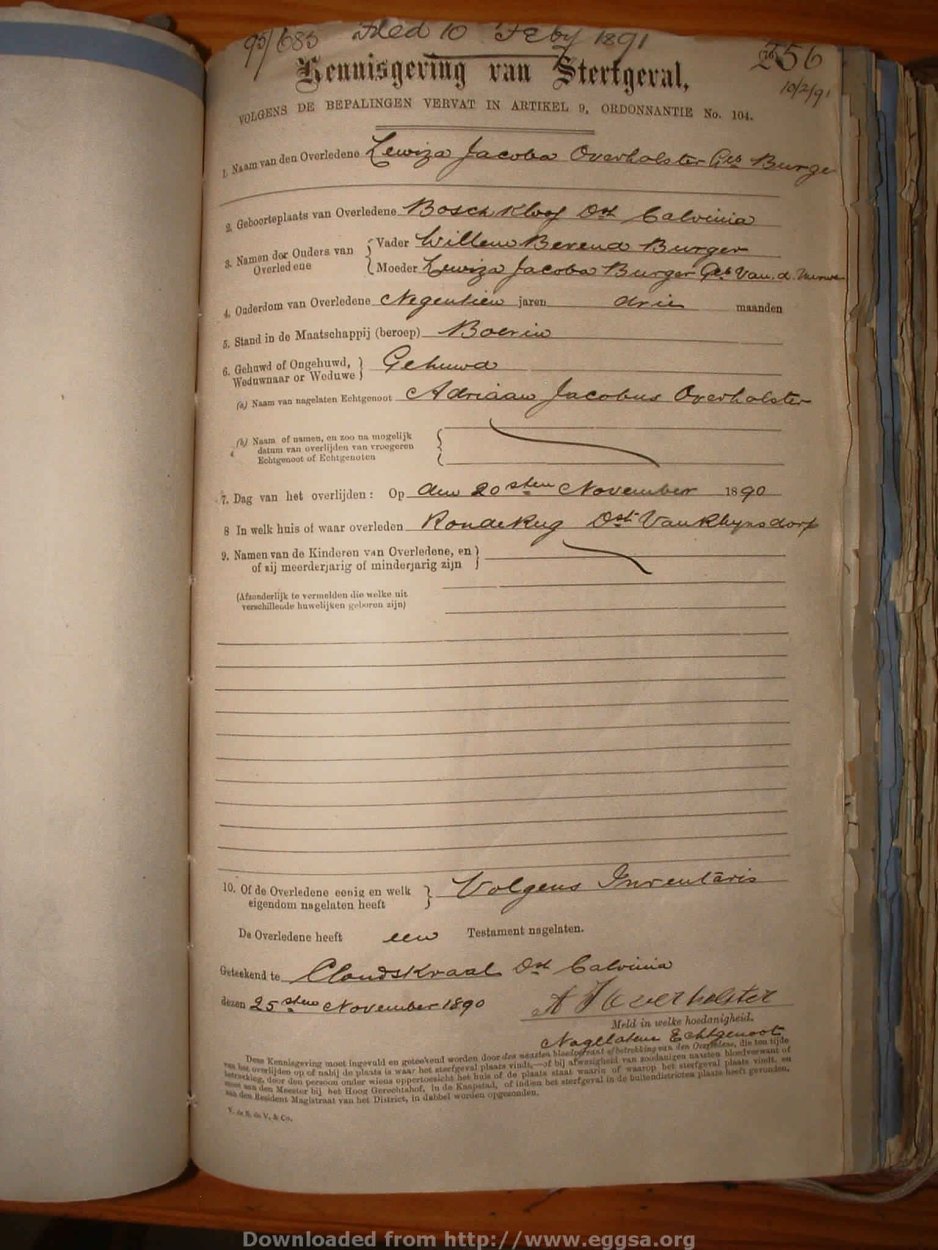 95/683 Filed 10 Feby 1891
256
10/2/91
Kennisgeving van Sterfgeval,
VOLGENS DE BEPALINGEN VERVAT IN ARTIKEL 9, ORDONNANTIE No. 104.
1. Naam van den Overledene Lewiza Jacoba Overholster Geb Burger
2. Geboorteplaats van Overledene Bosch Kloof Dst Calvinia
3. Namen der Ouders van Overledene { Vader Willem Berend Burger
Moeder Lewiza Jacoba Burger Geb Van. d. Merwe
4. Ouderdom van Overledene Negentien jaren drie maanden
5. Stand in de Maatschappij (beroep) Boerin
6. Gehuwd of Ongehuwd, Weduwnaar or Weduwe } Gehuwd
(a) Naam van nagelaten Echtgenoot Adriaan Jacobus Overholster
(b) Naam of namen, en zoo na mogelijk
datum van overlijden van vroegeren
Echtgenoot of Echtgenoten
7. Dag van het overlijden: Op den 20sten November 1890
8 In welk huis of waar overleden RondeKug Dst VanRhynsdorp
9. Namen van de Kinderen van Overledene, en
of zij meerderjarig of minderjarig zijn
(Afzonderlijk te vermelden die welke uit
verschillende huwelijken geboren zijn)
10. Of de Overledene eenig en welk eigendom nagelaten heeft } Volgens Inventaris
De Overledene heeft een Testament nagelaten.
Geteekend te Cloudskraal Dst Calvinia
dezen 25sten November 1890 A J Overholster
Meld in welke hoedanigheid.
Nagelaten Echtgenoot
Deze Kennisgeving moet ingevuld en geteekend worden door den naasten bloedverwant of betrekking van den Overledene, die ten tijde
van het overlijden op of nabij de plaats is waar het sterfgeval plaats vindt,—of bij afwezigheid van zoodanigen naasten bloedverwant of
betrekking, door den persoon onder wiens oppertoezicht het huis of de plaats staat waarin of waarop het sterfgeval plaats vindt, en
moet aan den Meester bij het Hoog Gerechtshof, in de Kaapstad, of indien het sterfgeval in de buitendistricten plaats heeft gevonden,
aan den Resident Magistraat van het District, in dubbel worden opgezonden.
V. de S. de V., & Co.
Downloaded from http://www.eggsa.org